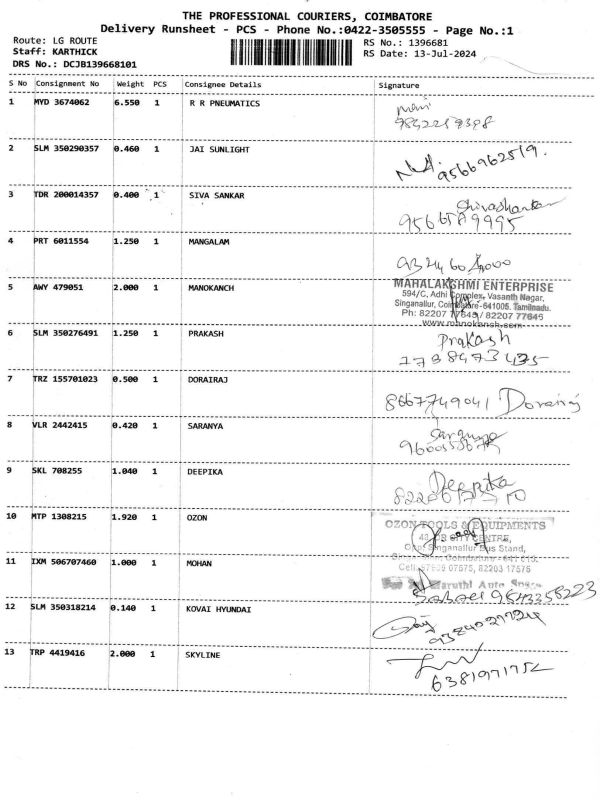 THE PROFESSIONAL COURIERS, COIMBATORE
Delivery Runsheet - PCS - Phone No.:0422-3505555 - Page No.:1
Route: LG ROUTE RS No.: 1396681
Staff: KARTHICK RS Date: 13-Jul-2024
DRS No.: DCJB139668101
S No Consignment No Weight PCS Consignee Details Signature
1 MYD 3674062 6.550 1 R R PNEUMATICS
2 SLM 350290357 0.460 1 JAI SUNLIGHT
9566962519.
3 TDR 200014357 0.400 1 SIVA SANKAR
Shivashankar
4 PRT 6011554 1.250 1 MANGALAM
5 AWY 479051 2.000 1 MANOKANCH
MAHALAKSHMI ENTERPRISE
594/C, Adhi Complex, Vasanth Nagar,
Singanallur, Coimbatore-641005. Tamilnadu.
Ph: 82207 77645 / 82207 77646
www.manokansh.com
6 SLM 350276491 1.250 1 PRAKASH
Prakash
7 TRZ 155701023 0.500 1 DORAIRAJ
8667749041 Dorairaj
8 VLR 2442415 0.420 1 SARANYA
Saranya
9 SKL 708255 1.040 1 DEEPIKA
Deepika
10 MTP 1308215 1.920 1 OZON
OZON TOOLS & EQUIPMENTS
Singanallur Bus Stand,
11 IXM 506707460 1.000 1 MOHAN
Maruthi Auto
9543358223
12 SLM 350318214 0.140 1 KOVAI HYUNDAI
13 TRP 4419416 2.000 1 SKYLINE
6381971752